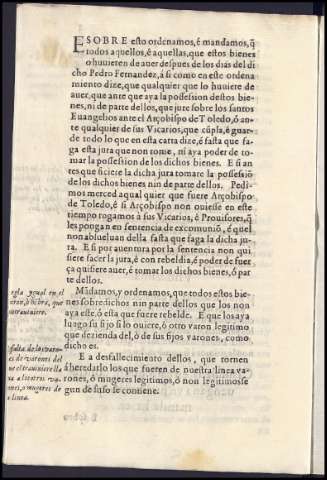 E SOBRE esto ordenamos, é mandamos, q̃
todos aquellos, é aquellas, que estos bienes
o huuieren de auer despues de los dias del di
cho Pedro Fernandez, á si como en este ordena
miento dize, que qualquier que lo huuiere de
auer, que ante que aya la possession destos bie
nes, ni de parte dellos, que jure sobre los santos
Euangelios ante el Arçobispo de Toledo, ó an-
te qualquier de sus Vicarios, que cũpla, é guar
de todo lo que en esta carta dize, é fasta que fa-
ga esta jura que non tome, ni aya poder de to-
mar la possession de los dichos bienes. E si an
tes que ficiere la dicha jura tomare la possessiõ
de los dichos bienes nin de parte dellos. Pedi-
mos merced aqual quier que fuere Arçobispo
de Toledo, é si Arçobispo non ouiesse en este
tiempo rogamos à sus Vicarios, é Prouisores, q̃
les pongan en sentencia de excomuniõ, é quel
non absueluan della fasta que faga la dicha ju-
ra. E si por auentura por la sentencia non qui
siere facer la jura, é con rebeldia, é poder de fuer
ça quisiere auer, é tomar los dichos bienes, ó par
te dellos.
Mãdamos, y ordenamos, que todos estos bie-
nes sobredichos nin parte dellos que los non
aya esse, ó esta que fuere rebelde. E que los aya
luego su fijo si lo ouiere, ó otro varon legitimo
que decienda del, ó de sus fijos varones, como
dicho es.
E a desfallecimiento dellos, que tornen
á heredarlo los que fueren de nuestra linea va-
rones, ó mugeres legitimos, ó non legitimos se
gun de suso se contiene.
regla ygual en el
varon, ó hẽbra, que
contrauiniere.
falta de los varo-
nes